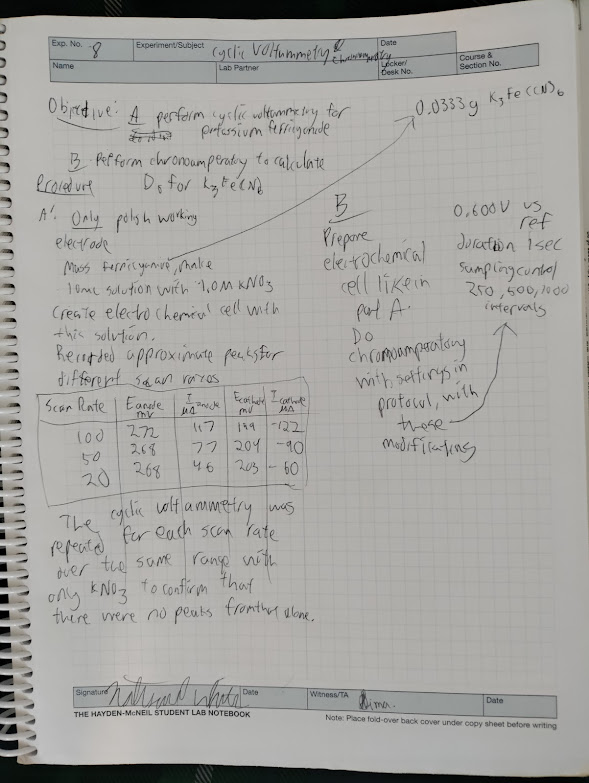 Exp. No. 8
Experiment/Subject cyclic Voltummetry &
chronoamperometry
Date
Name
Lab Partner
Locker/
Desk No.
Course &
Section No.
Objective: A perform cyclic voltammetry for
potassium ferricyanide
0.0333g K3Fe(CN)6
B. Perform chronoamperatory to calculate
D for K3Fe(CN)6
Procedure
A: Only polish working
electrode
Mass ferricyanide, make
10mL solution with 1.0M KNO3
Create electrochemical cell with
this solution.
Recorded approximate peaks for
different scan rates
Scan Rate Eanode mV Ianode μA Ecathode mV Icathode μA
100 272 117 199 -122
50 268 77 204 -90
20 268 46 203 -60
The cyclic voltammetry was
repeated for each scan rate
over the same range with
only KNO3 to confirm that
there were no peaks from that alone.
B
Prepare
electrochemical
cell like in
part A.
Do
chronoamperatory
with settings in
protocol, with
these
modifications
0.600V vs
ref
duration 1sec
sampling control
250, 500, 1000
intervals
Signature
Date
Witness/TA
Date
THE HAYDEN-McNEIL STUDENT LAB NOTEBOOK
Note: Place fold-over back cover under copy sheet before writing